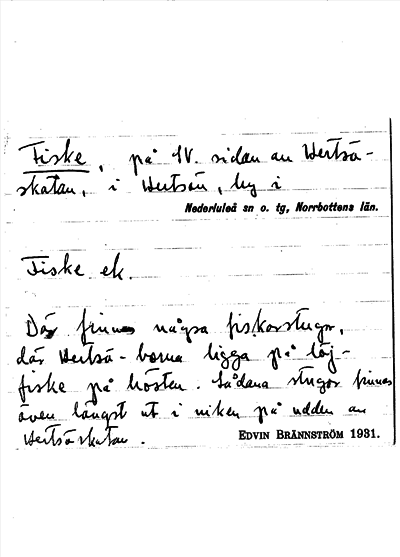 Fiske, på SV. sidan av Hertsö-
skatan, i Hertsön, by i
Nederluleå sn o. tg, Norrbottens län.
Fiske ek.
Där finnes några fiskarstugor,
där Hertsö-borna ligga på löj-
fiske på hösten. Sådana stugor finnas
även längst ut i viken på udden av
Hertsöskatan.
EDVIN BRÄNNSTRÖM 1931.